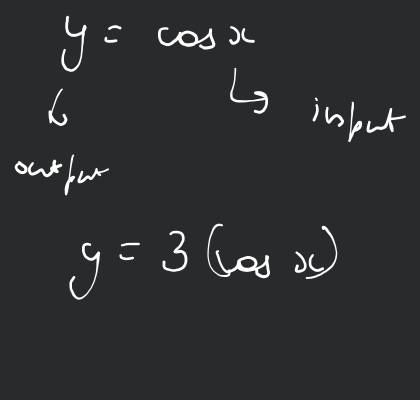 y = cos x
input
output
y = 3 (cos x)